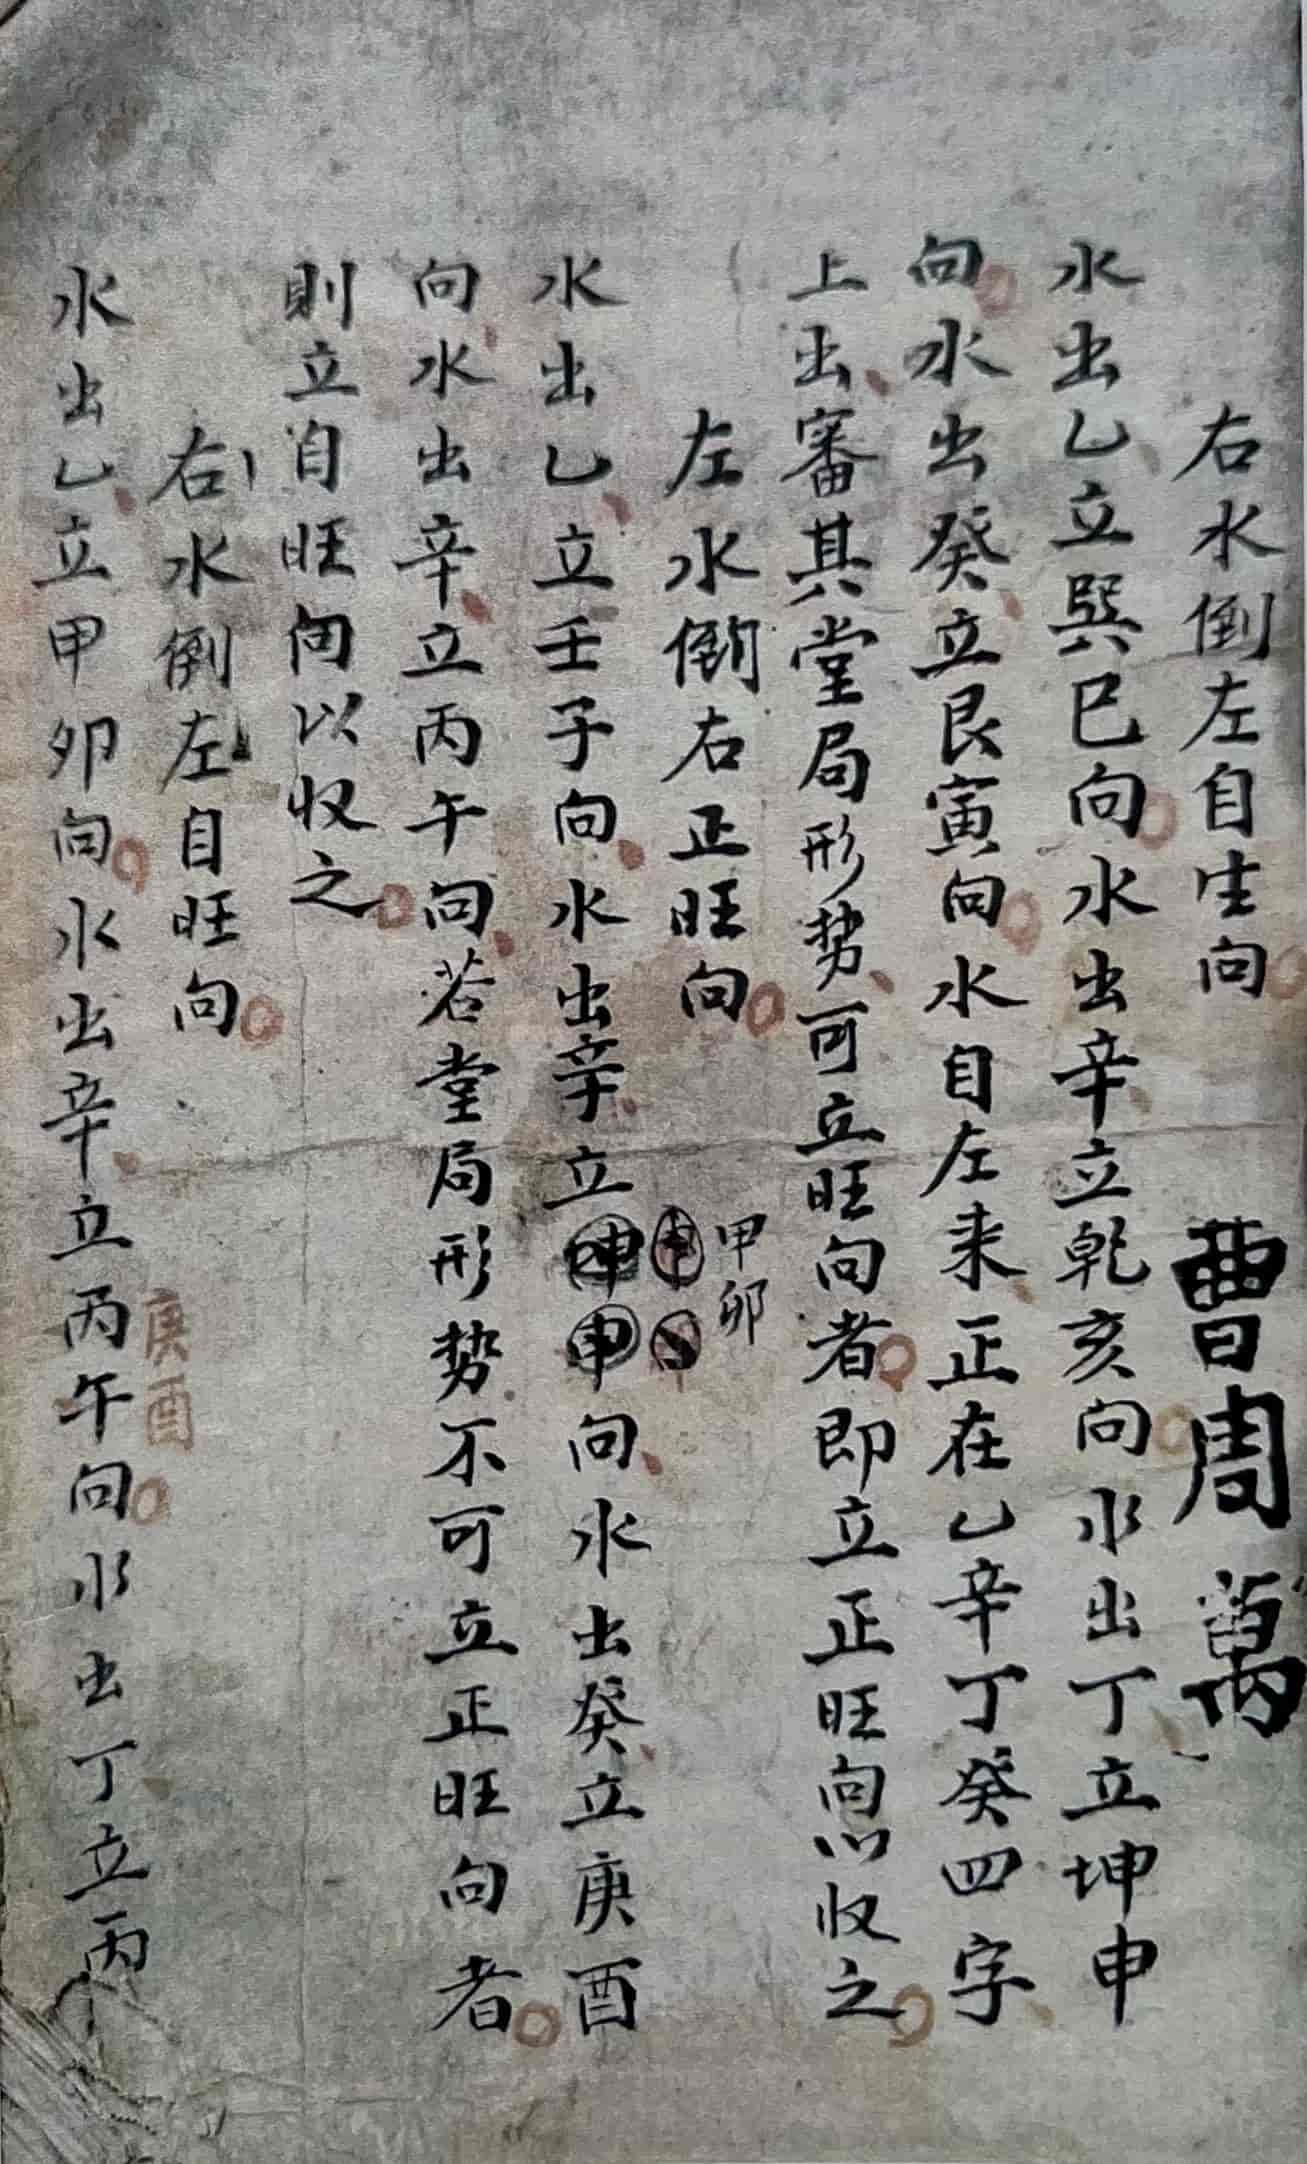 右水倒左自生向 曹周萬
水出乙立巽巳向水出辛立乾亥向水出丁立坤申
向水出癸立艮寅向水自左来正在乙辛丁癸四字
上出審其堂局形势可立旺向者即立正旺向以收之
左水倒右正旺向
甲卯
水出乙立壬子向水出辛立坤申向水出癸立庚酉
向水出辛立丙午向若堂局形势不可立正旺向者
則立自旺向以收之
右水倒左自旺向
庚酉
水出乙立甲卯向水出辛立丙午向水出丁立丙